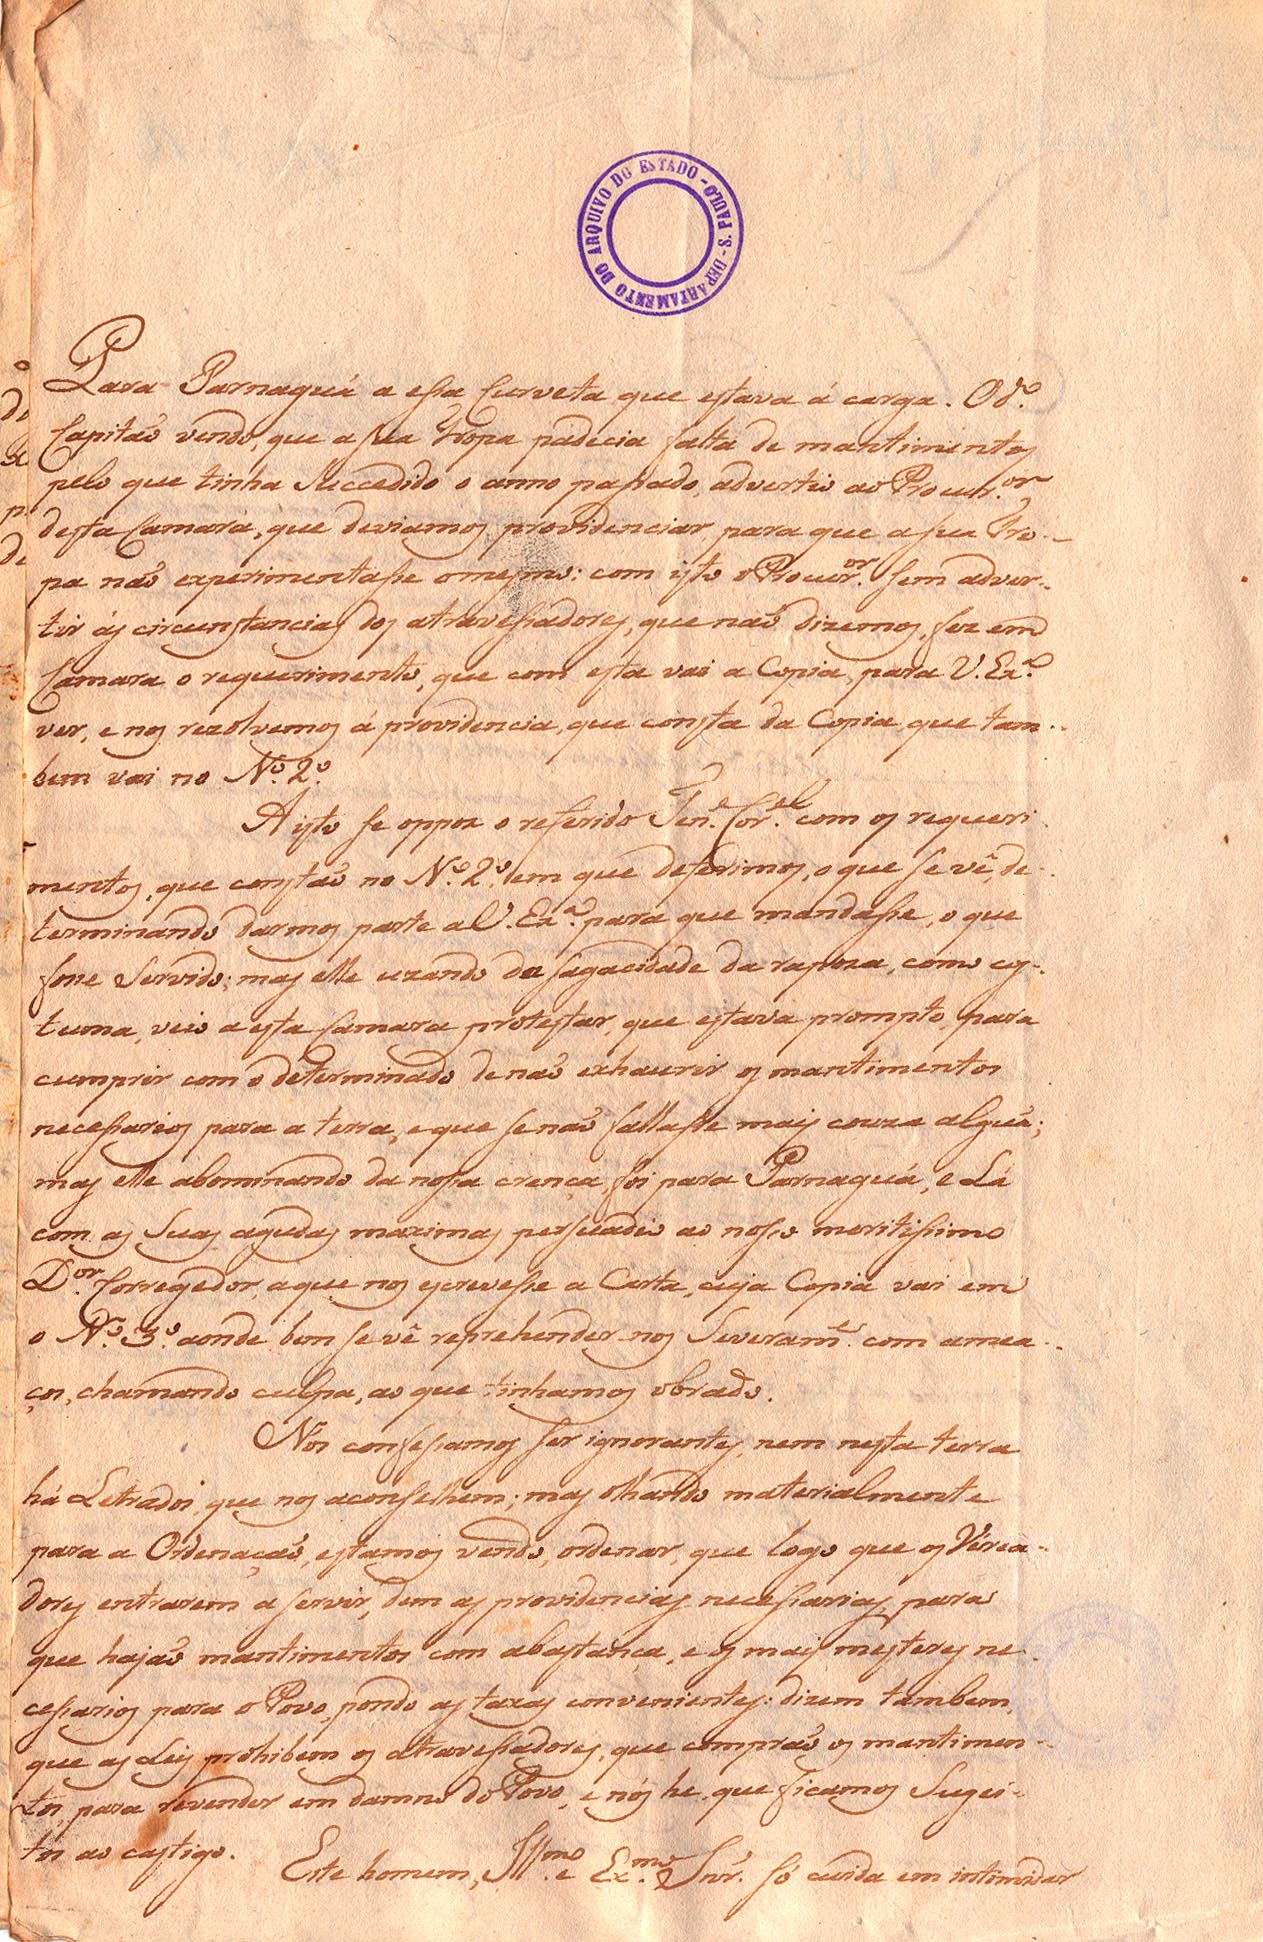 DEPARTAMENTO DO ARQUIVO DO ESTADO - S. PAULO -
Para Parnaguá a essa Curveta que estava á carga. O d.º
Capitaõ vendo, que a sua Tropa padecia falta de mantimentos
pelo que tinha succedido o anno passado, advertio ao Procur.or
desta Camara, que deviamos providenciar, para que a sua Tro-
pa naõ experimentasse o mesmo: com isto o Procur.or sem adver-
tir ás circunstancias dos atravessadores, que naõ dizemos, fez em
Camara o requerimento, que com esta vai a Copia, para V. Ex.ª
ver, e nos rezolvemos á providencia, que consta da Copia, que tam-
bem vai no N.º 2.º
A isto se oppoz o referido Ten.e Cor.el com os requeri-
mentos, que constaõ no N.º 2.º, em que deferimos, o que se vê, de-
terminando darmos parte a V. Ex.ª para que mandasse, o que
fosse servido; mas elle uzando da sagacidade da rapoza, como cos-
tuma, veio a esta Camara protestar, que estava prompto, para
cumprir com o determinado de naõ exhaurir os mantimentos
necessarios para a terra, e que se naõ fallasse mais couza algũa;
mas elle abominando da nossa crença, foi para Parnaguá, e Lá
com as suas agudas maximas persuadio ao nosso meritissimo
D.or Corregedor, a que nos escrevesse a Carta, cuja Copia vai em
o N.º 3.º aonde bem se vê reprehender-nos Severam.e com amea-
ços, chamando culpa, ao que tinhamos obrado.
Nós confessamos ser ignorantes, nem nesta terra
há Letrados, que nos aconselhem; mas olhando materialmente
para a Ordenaçaõ, estamos vendo, ordenar, que logo que os Verea-
dores entrarem a servir, dem as providencias necessarias, para
que hajaõ mantimentos com abastança, e os mais mesteres ne-
cessarios para o Povo, pondo as taxas convenientes: dizem tambem,
que as Leis prohibem os atravessadores, que compraõ os mantimen-
tos, para revender em damno do Povo, e nós he, que ficamos Sugei-
tos ao castigo.
Este homem, Ill.mo e Ex.mo Snr. só cuida em intimidar